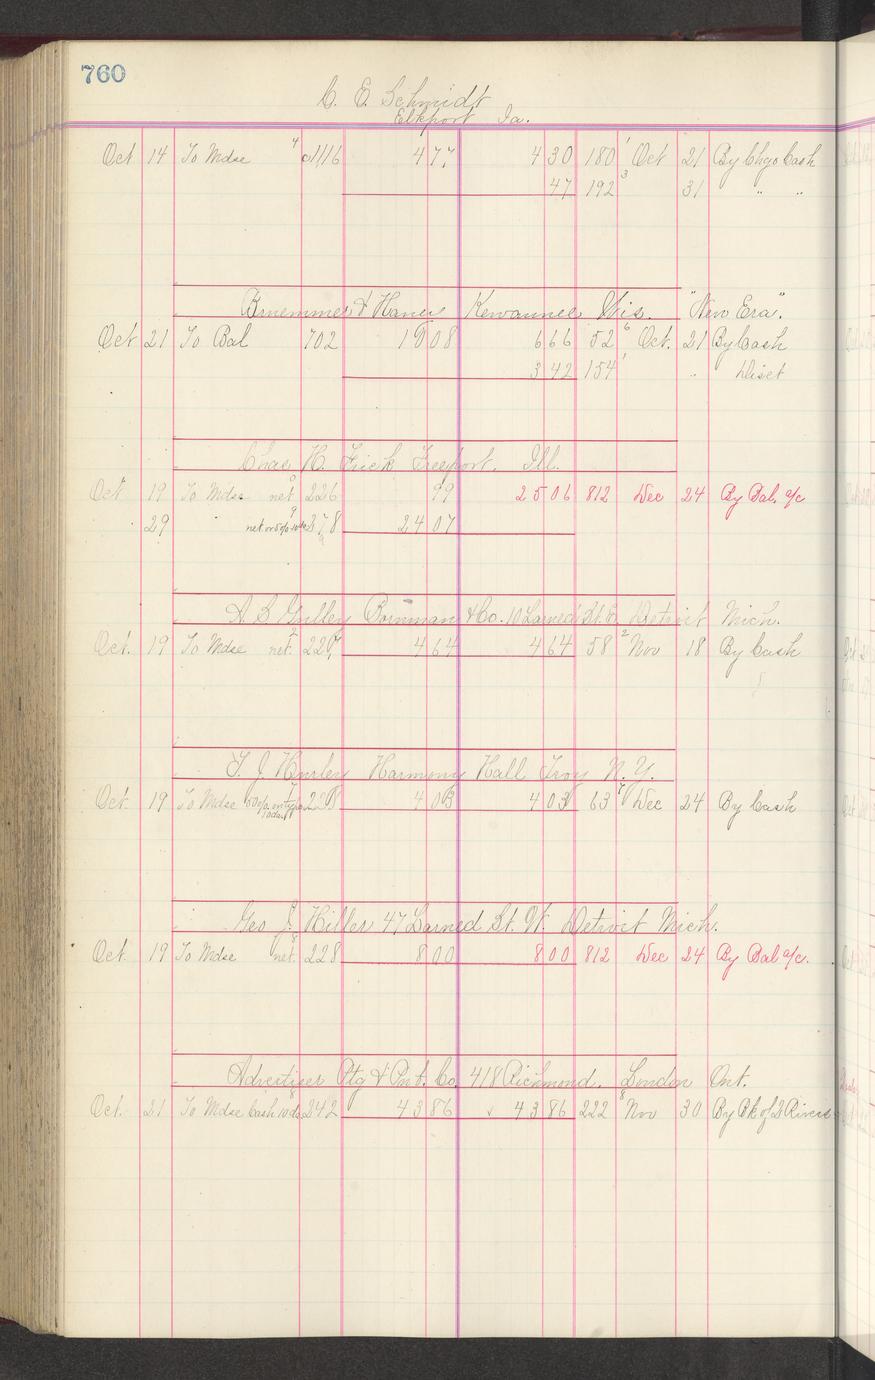 760
C. E. Schmidt
Elkport Ia.
Oct 14 To Mdse 4 477 430 180 1 Oct 21 By Chgo Cash
47 192 3 31 " "
& Haney Kewaunee Wis. "New Era"
Oct 21 To Bal 702 1008 666 52 6 Oct. 21 By Cash
342 154 1 " Disct
Chas H. Frick Freeport, Ill.
Oct 19 To Mdse net 226 99 2506 812 Dec 24 By Bal. a/c
29 net 378 2407
A S Gulley Bornman & Co. 10 Larned St. E. Detroit Mich.
Oct. 19 To Mdse net. 2 227 464 464 58 2 Nov 18 By Cash
T. J. Hurley Harmony Hall Troy N.Y.
Oct 19 To Mdse 228 403 403 63 7 Dec 24 By Cash
10 das
Geo J. Hiller 47 Larned St. W. Detroit Mich.
Oct 19 To Mdse net. 228 800 800 812 Dec 24 By Bal a/c.
Advertiser Ptg & Pnt. Co. 418 Richmond, London Ont.
Oct. 21 To Mdse Cash 10 ds 242 4386 4386 222 8 Nov 30 By Bk of 2 Rivers